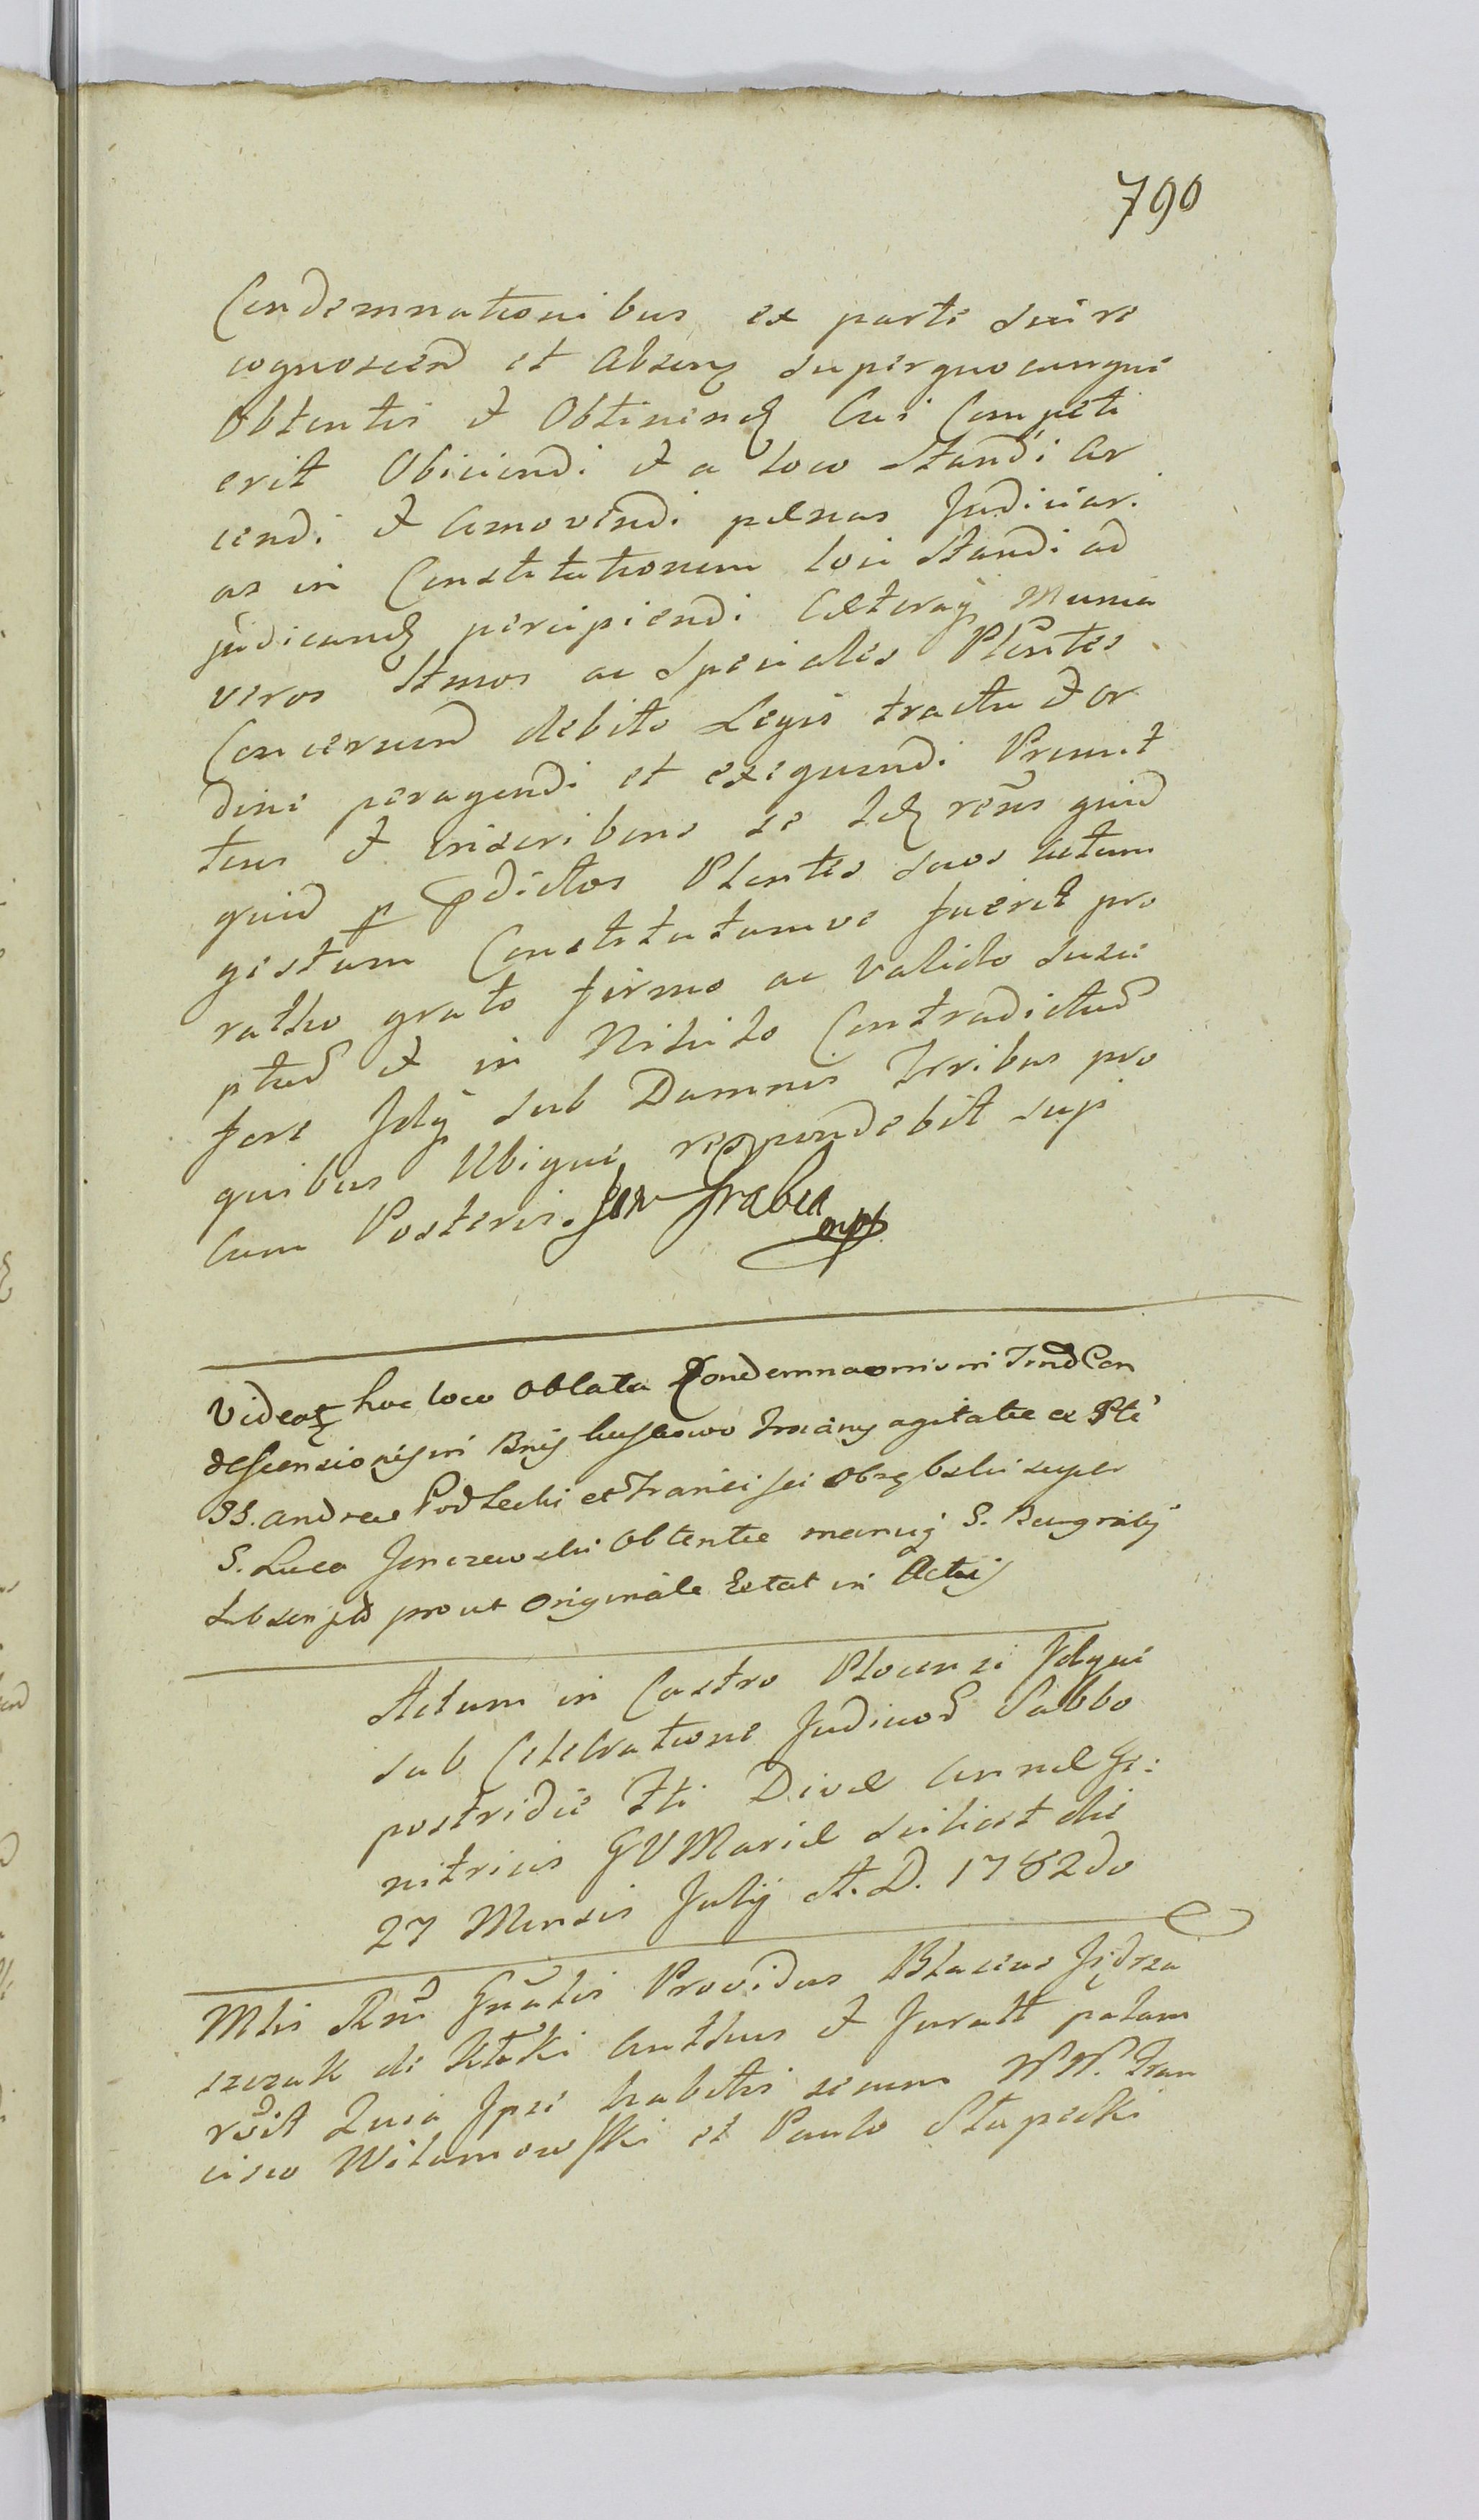 790
Condemnationibus ex parte sui re
cognoscend et Absenq superquocunque
Obtentis et Obtinendq Cui Competi
erit Obiiciendi et a loco Standi Ar
cendi et Amovendi pænas Judiciar.
as in Constitutionem loci Standi ad
judicandq percipiendi Cæteraq Munia
veros Stmos ac Speciales Plentes
Concernend debito Legis tractu et or
dine peragendi et exequendi
tens et inscribens se Idq reñs quid
quid p pdictos Plentes suos actum
gestum Constitutumve fuerit pro
ratho grato firmo ac valido susce
ptud et in Nihilo Contradictud
fore Idq sub Damnis Irribus pro
quibus Ubique respondebit sup
Cum Posteris. Jan Grabia mp

Videatq hoc loco Oblata Condemnaonis in Con
descensionis in Bnis agitatæ ex Pte
SS. Andreæ Podlecki et Francisci Obrębski super
S. Luca Jonczewski Obtentæ manuq S. Burgrabij
Subscriptd prout Originale Extat in Actis

Actum in Castro Plocensi Idque
sub Celebratione Judiciord Sabbo
postridie fti Divæ Annæ Ge:
nitricis GVMariæ scilicet die
27 Mensis Julij A. D. 1782do

Mlis Rni Gnalis Providus Blasius Jędrzei
szczak de Authus et Juratt palam
rcdit Quia Ipse habitis secum NN. Fran
cisco Wilamowski et Paulo Słupecki